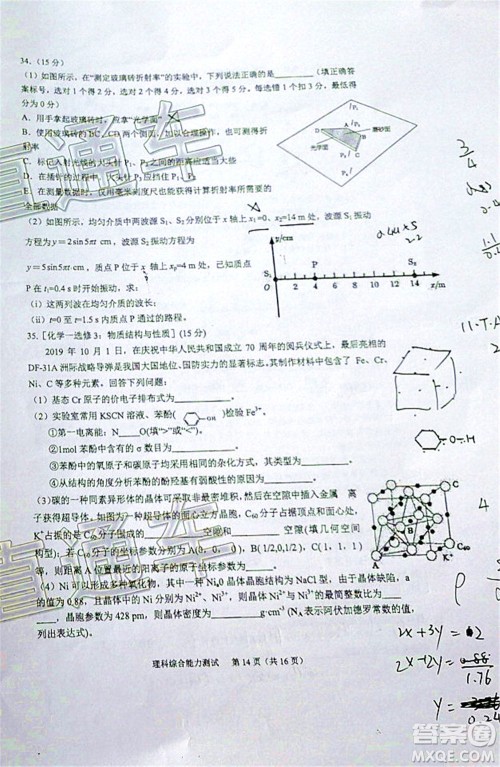 34.（15 分）
（1）如图所示，在“测定玻璃砖折射率”的实验中，下列说法正确的是________（填正确答
案标号，选对 1 个得 2 分，选对 2 个得 4 分，选对 3 个得 5 分，每选错 1 个扣 3 分，最低得
分为 0 分）
A．用手拿起玻璃砖时，应拿“光学面”
B．使用玻璃砖的 BC、CD 两个侧面，也可以测出玻璃砖的折
射率
C．标记入射光线的大头针 P₁、P₂ 之间的距离适当大些
D．入射角应尽可能
E．测量数据时，仅用毫米刻度尺也能获得计算折射率所需要的
全部数据
P₁
P₂
A
D
B
磨砂面
光学面
P₃
P₄
（2）如图所示，均匀介质中两波源 S₁、S₂ 分别位于 x 轴上 x₁=0、x₂=14 m 处，波源 S₁ 振动
方程为 y＝2sin5πt cm，波源 S₂ 振动方程为
y＝5sin5πt cm，质点 P 位于 x 轴上 xₚ=4 m 处，已知质点
P 在 t=0.4 s 时开始振动，求：
（i）这两列波在均匀介质中的波长；
（ii）t=0 至 t=1.5s 内质点 P 通过的路程。
y/cm
S₁ P S₂
0 2 4 6 8 10 12 14 x/m
35.［化学一选修 3：物质结构与性质］（15 分）
2019 年 10 月 1 日，在庆祝中华人民共和国成立 70 周年的阅兵仪式上，最后亮相的
DF-31A 洲际战略导弹是我国大国地位、国防实力的显著标志。其制作材料中包含了 Fe、Cr、
Ni、C 等多种元素。回答下列问题：
（1）基态 Cr 原子的价电子排布式为________。
（2）实验室常用 KSCN 溶液、苯酚（ OH）检验 Fe³⁺。
①第一电离能：N____O（填“>”或“<”）。
②1mol 苯酚中含有 σ 数目为________。
③苯酚中的氧原子和碳原子均采用相同的杂化方式，其类型为________。
④从结构的角度分析苯酚的酚羟基有弱酸性的原因为________。
（3）碳的一种同素异形体的晶体可采取非最密堆积，然后在空隙中插入金属离
子获得超导体。如图为一种超导体的面心立方晶胞，C₆₀ 分子占据顶点和面心处，
K⁺占据的是 C₆₀ 分子围成的________空隙和________空隙（填几何空间
构型）。若 C₆₀ 分子的坐标参数分别为 A（0，0，0）、B
等，则距离 A 位置最近的阳离子的原子坐标参数为________。
C
B
A K⁺ C₆₀
（4）Ni 可以形成多种氧化物，其中一种 NiaO 晶体晶胞结构为 NaCl 型，由于晶体缺陷，a
的值为 0.88，且晶体中的 Ni 分别为 Ni²⁺、Ni³⁺，则晶体中 Ni²⁺与 Ni³⁺的最简整数比为
____，晶胞参数为 428 pm，则晶体密度为____g·cm⁻³（Nᴀ 表示阿伏加德罗常数的值，
列出表达式）。
理科综合能力测试 第 14 页（共 16 页）
O-H
4
ρ
2x+3y=
2x-12y=
0.88
1.76
y=
0.24
答案圈
MXQE.COM